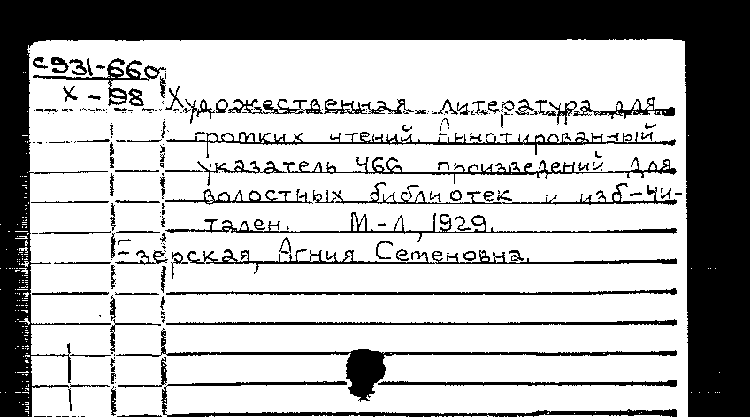 с931-660
X-98
Художественная литература для
громких чтений. Аннотированный
указатель 466 произведений для
волостных библиотек и изб-чи-
тален. М.-Л., 1929.
Езерская, Агния Семеновна.